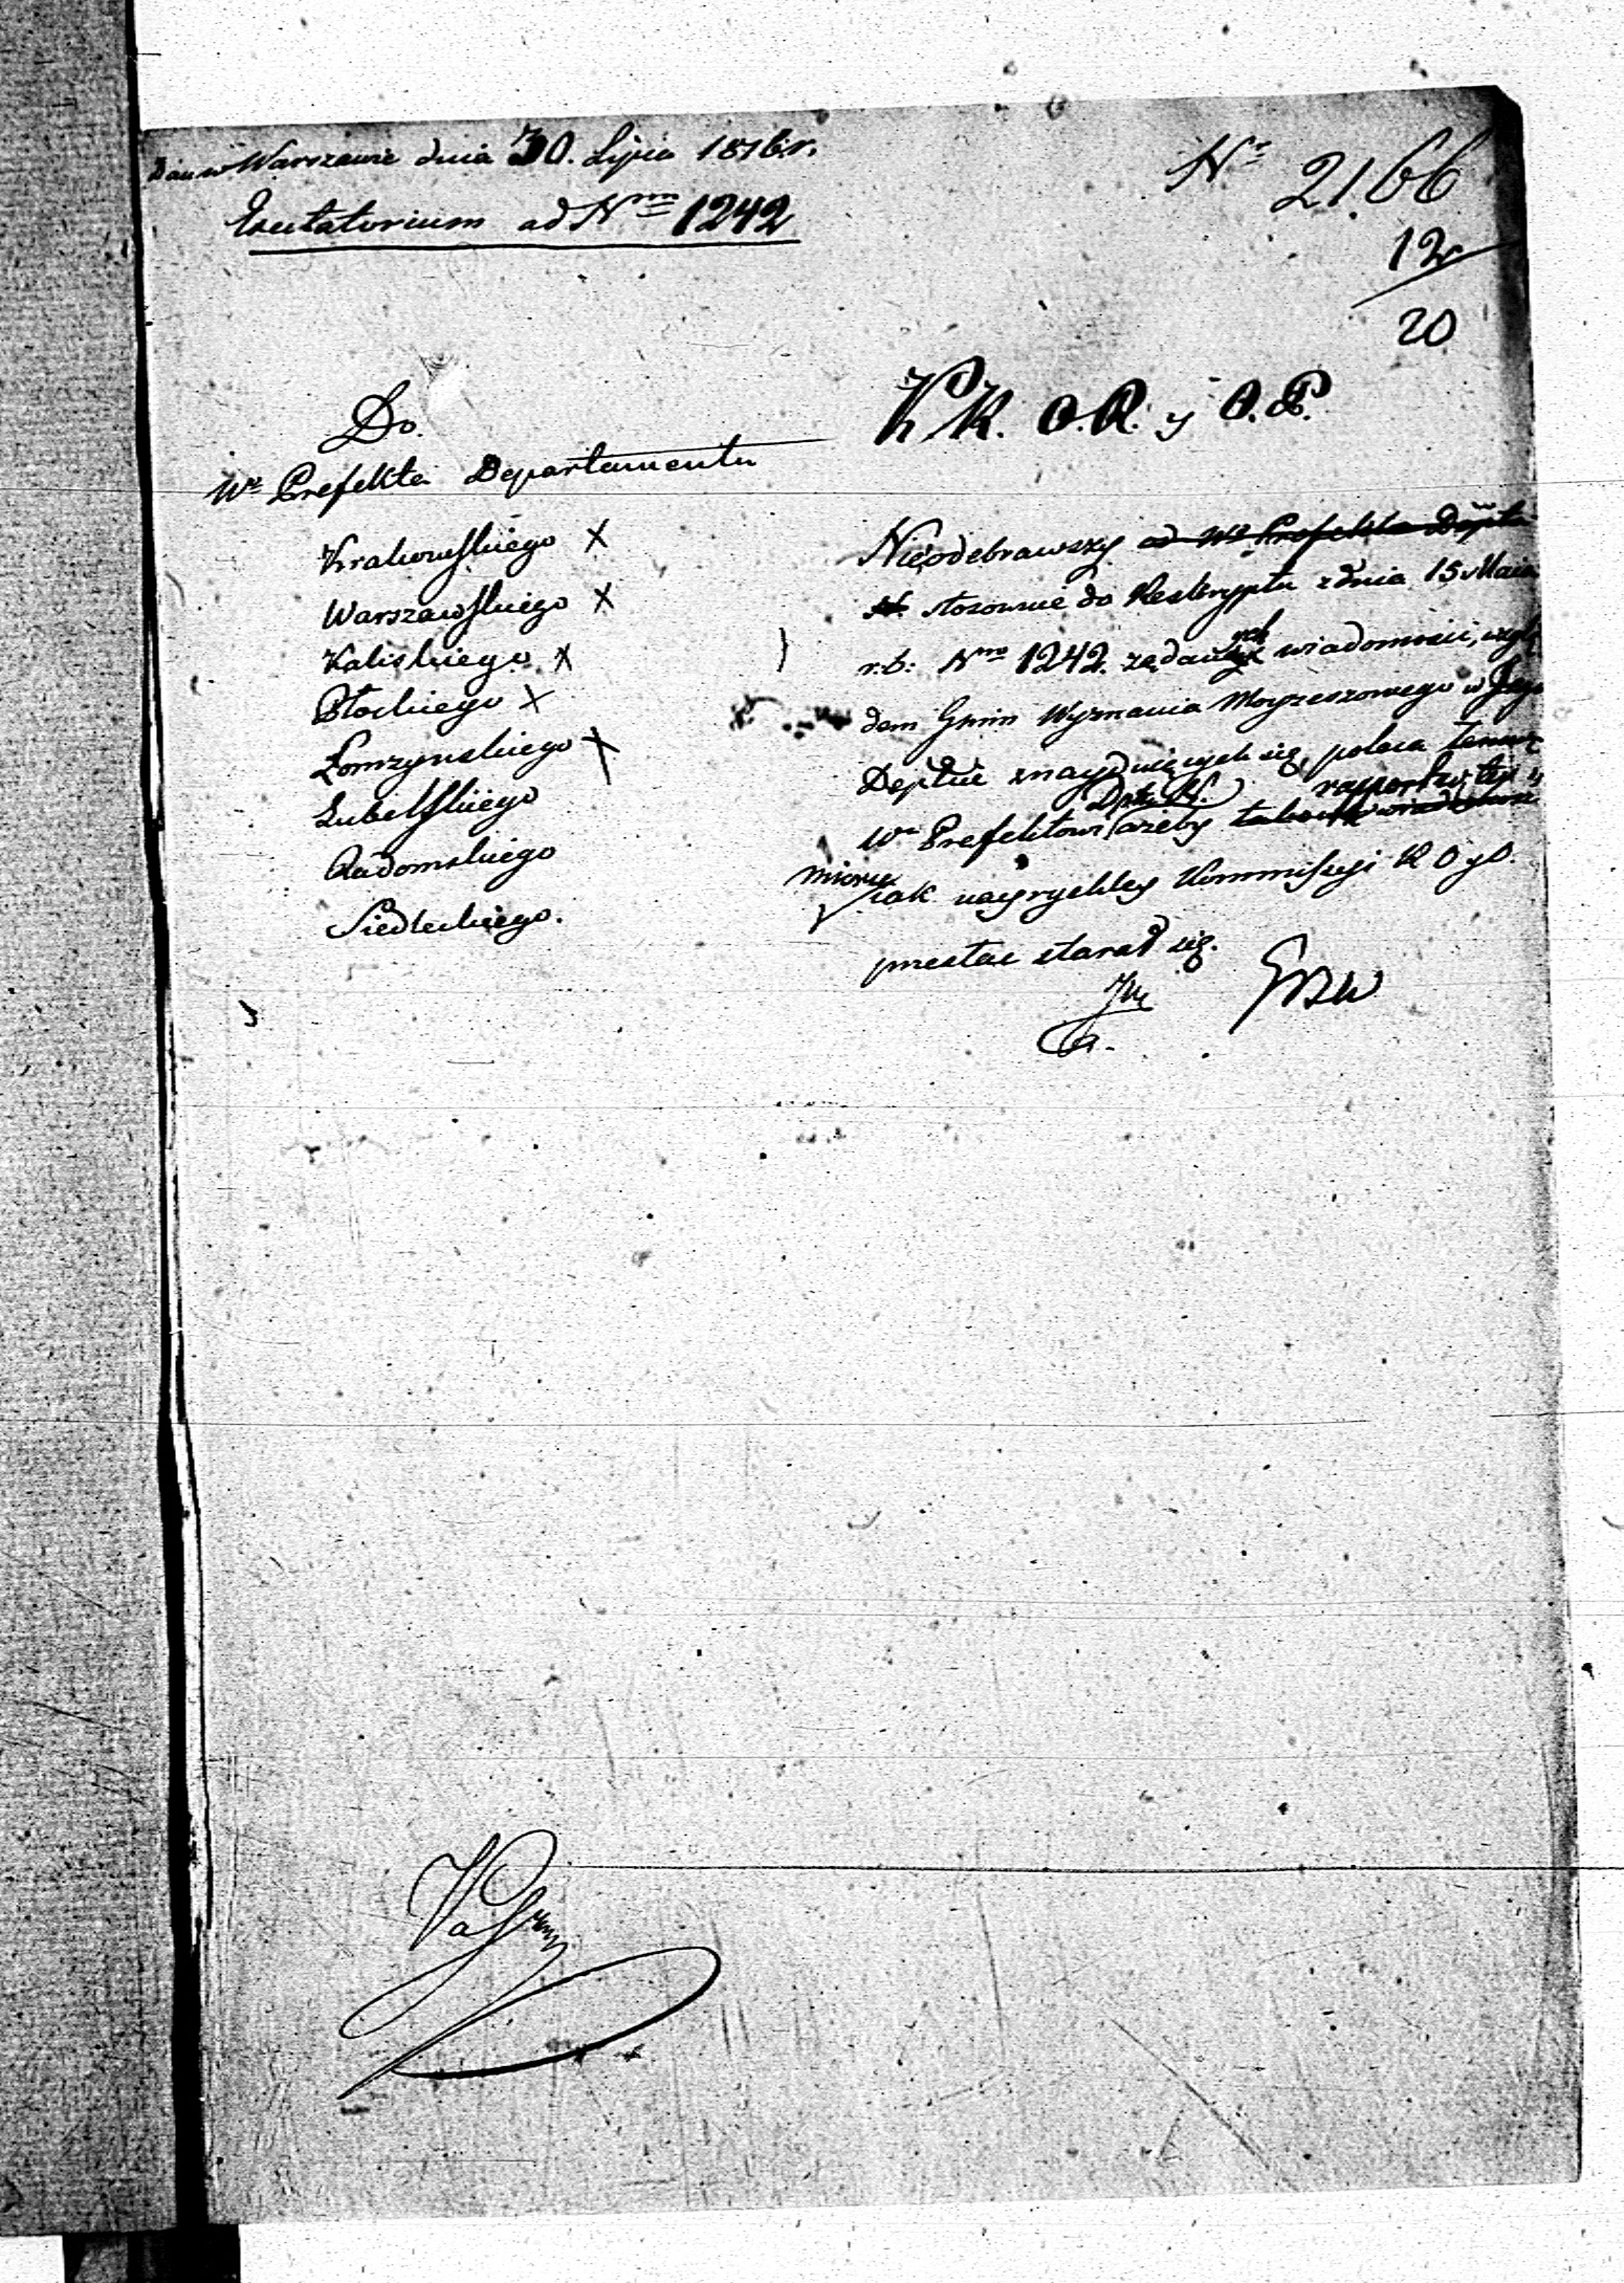 Dan w Warszawie dnia 30. Lipca 1816 r.
Excitatorium ad Nrum 1242
Nr 2166
12
20
Do
Wo Prefekta Departamentu
Krakowskiego X
Warszawskiego X
Kaliskiego X
Płockiego X
Łomzynskiego X
Lubelskiego
Radomskiego
Siedleckiego.
K. R. O. R. y O. P.
Nieodebrawszy od Wo Prefekta Deptu
N. stosownie do Reskryptu z dnia 15 Maia
r. b: Nro 1242. żądanych wiadomości, wzglę
dem Gmin Wyznania Moyzeszowego w Jego
Deptcie znayduiących się, poleca temuż
Dptu N. rapport w tey
Wu Prefektowi ażeby
mierze iak nayrychley Kommissyi R O y O.
przesłać starał się.